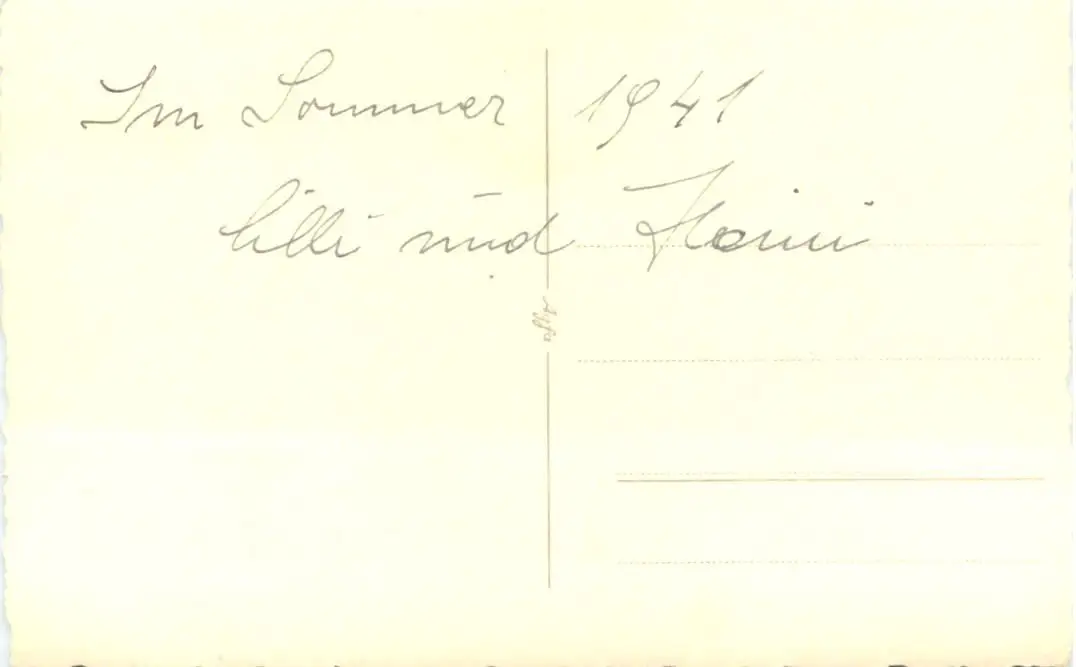 Im Sommer 1941
Lilli und Heini
Agfa